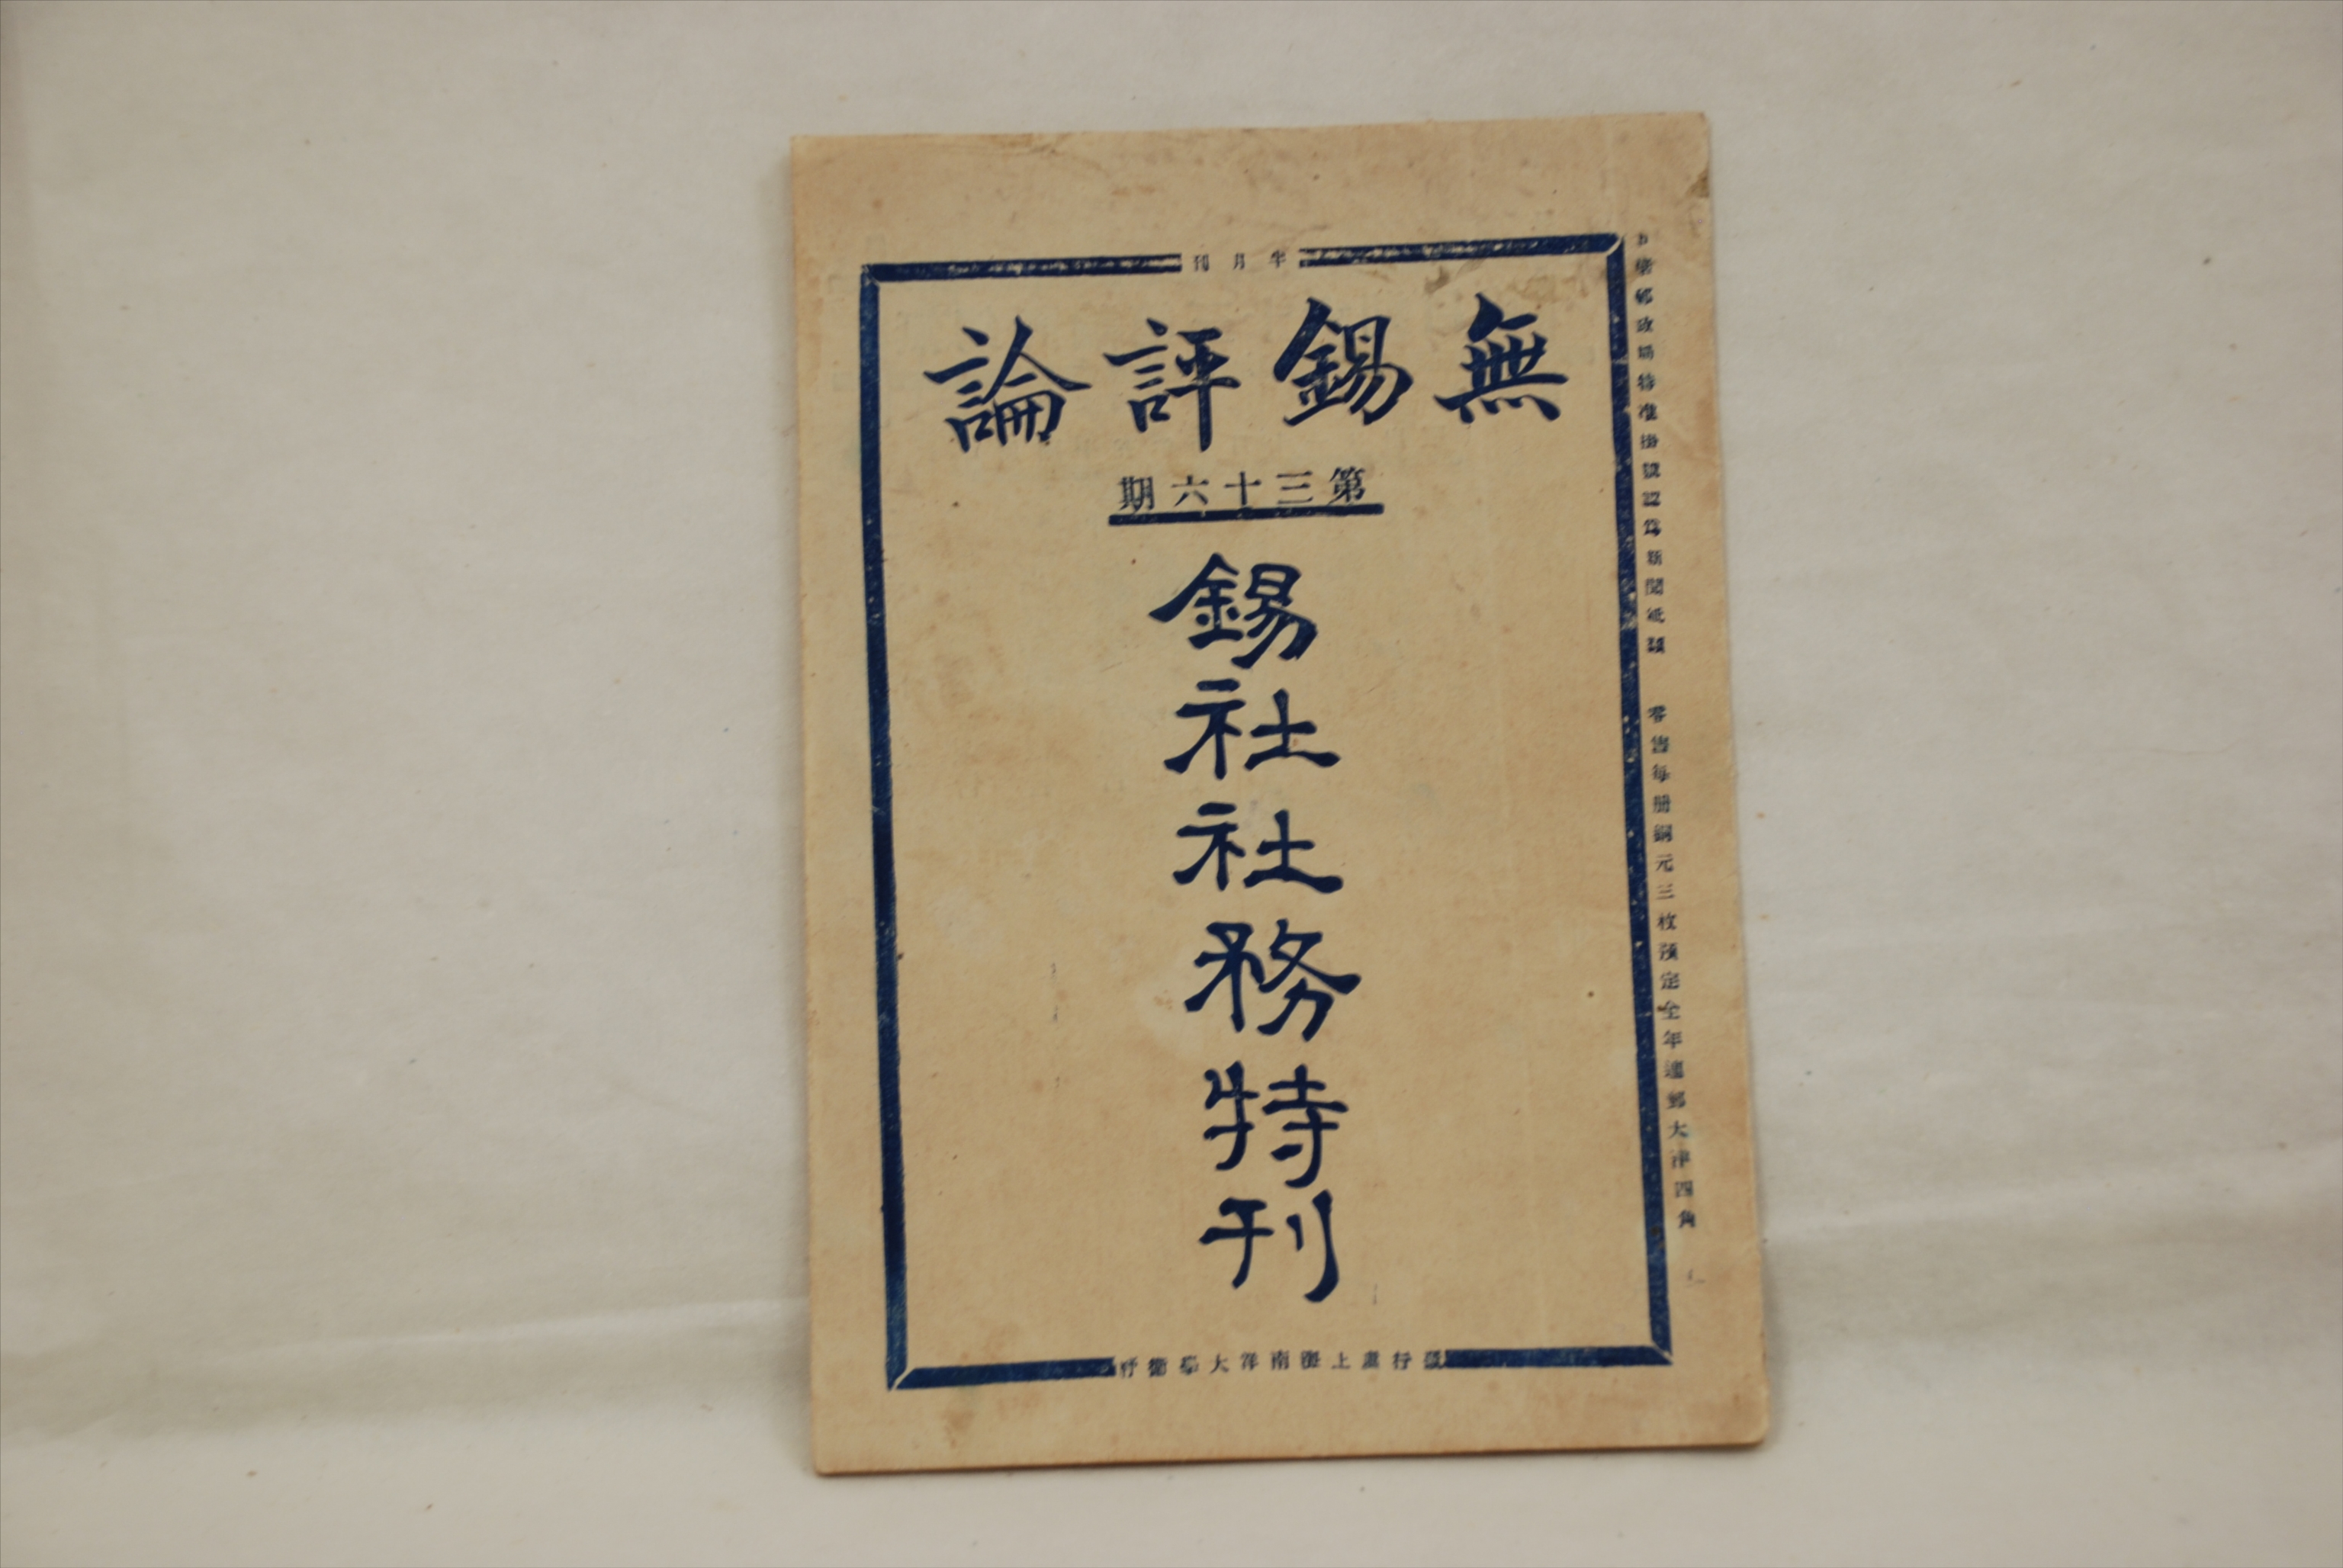 半月刊
無錫評論
第三十六期
錫社社務特刊
郵政局特准掛號認爲新聞紙類 零售每册銅元三枚預定全年連郵大洋四角
發行處上海南洋大學